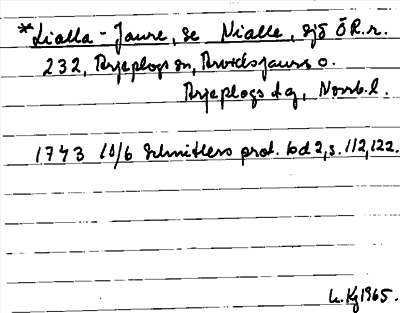 *Lialla-Jaure, se Nialle, sjö ÖR.r.
232, Arjeplogs sn, Arvidsjaurs o.
Arjeplogs tg, Norrb.l.
1743 10/6 Schnitlers prot. bd 2, s. 112, 122.
L.Kg 1965.